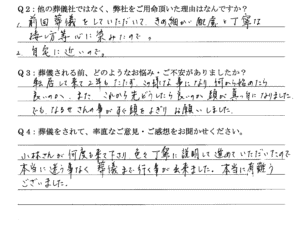 Q2：他の葬儀社ではなく、弊社をご用命頂いた理由はなんですか？
1. 前回葬儀をしていただいて、きめ細かい配慮と丁寧な
接し方等心に染みたので。
2. 自宅に近いので。
Q3：葬儀される前、どのようなお悩み・ご不安がありましたか？
転居して来て2年もたたず、この様な事になり何から始めたら
良いのか、また これからどうしたら良いのか 頭が真っ白になりました。
でも なるせさんの事が すぐ頭をよぎり お願いしました。
Q4：葬儀をされて、率直なご意見・ご感想をお聞かせください。
小林さんが何度も来て下さり 色々丁寧に説明して進めていただいたので
本当に迷う事なく 葬儀まで行く事が出来ました。本当に有難う
ございました。